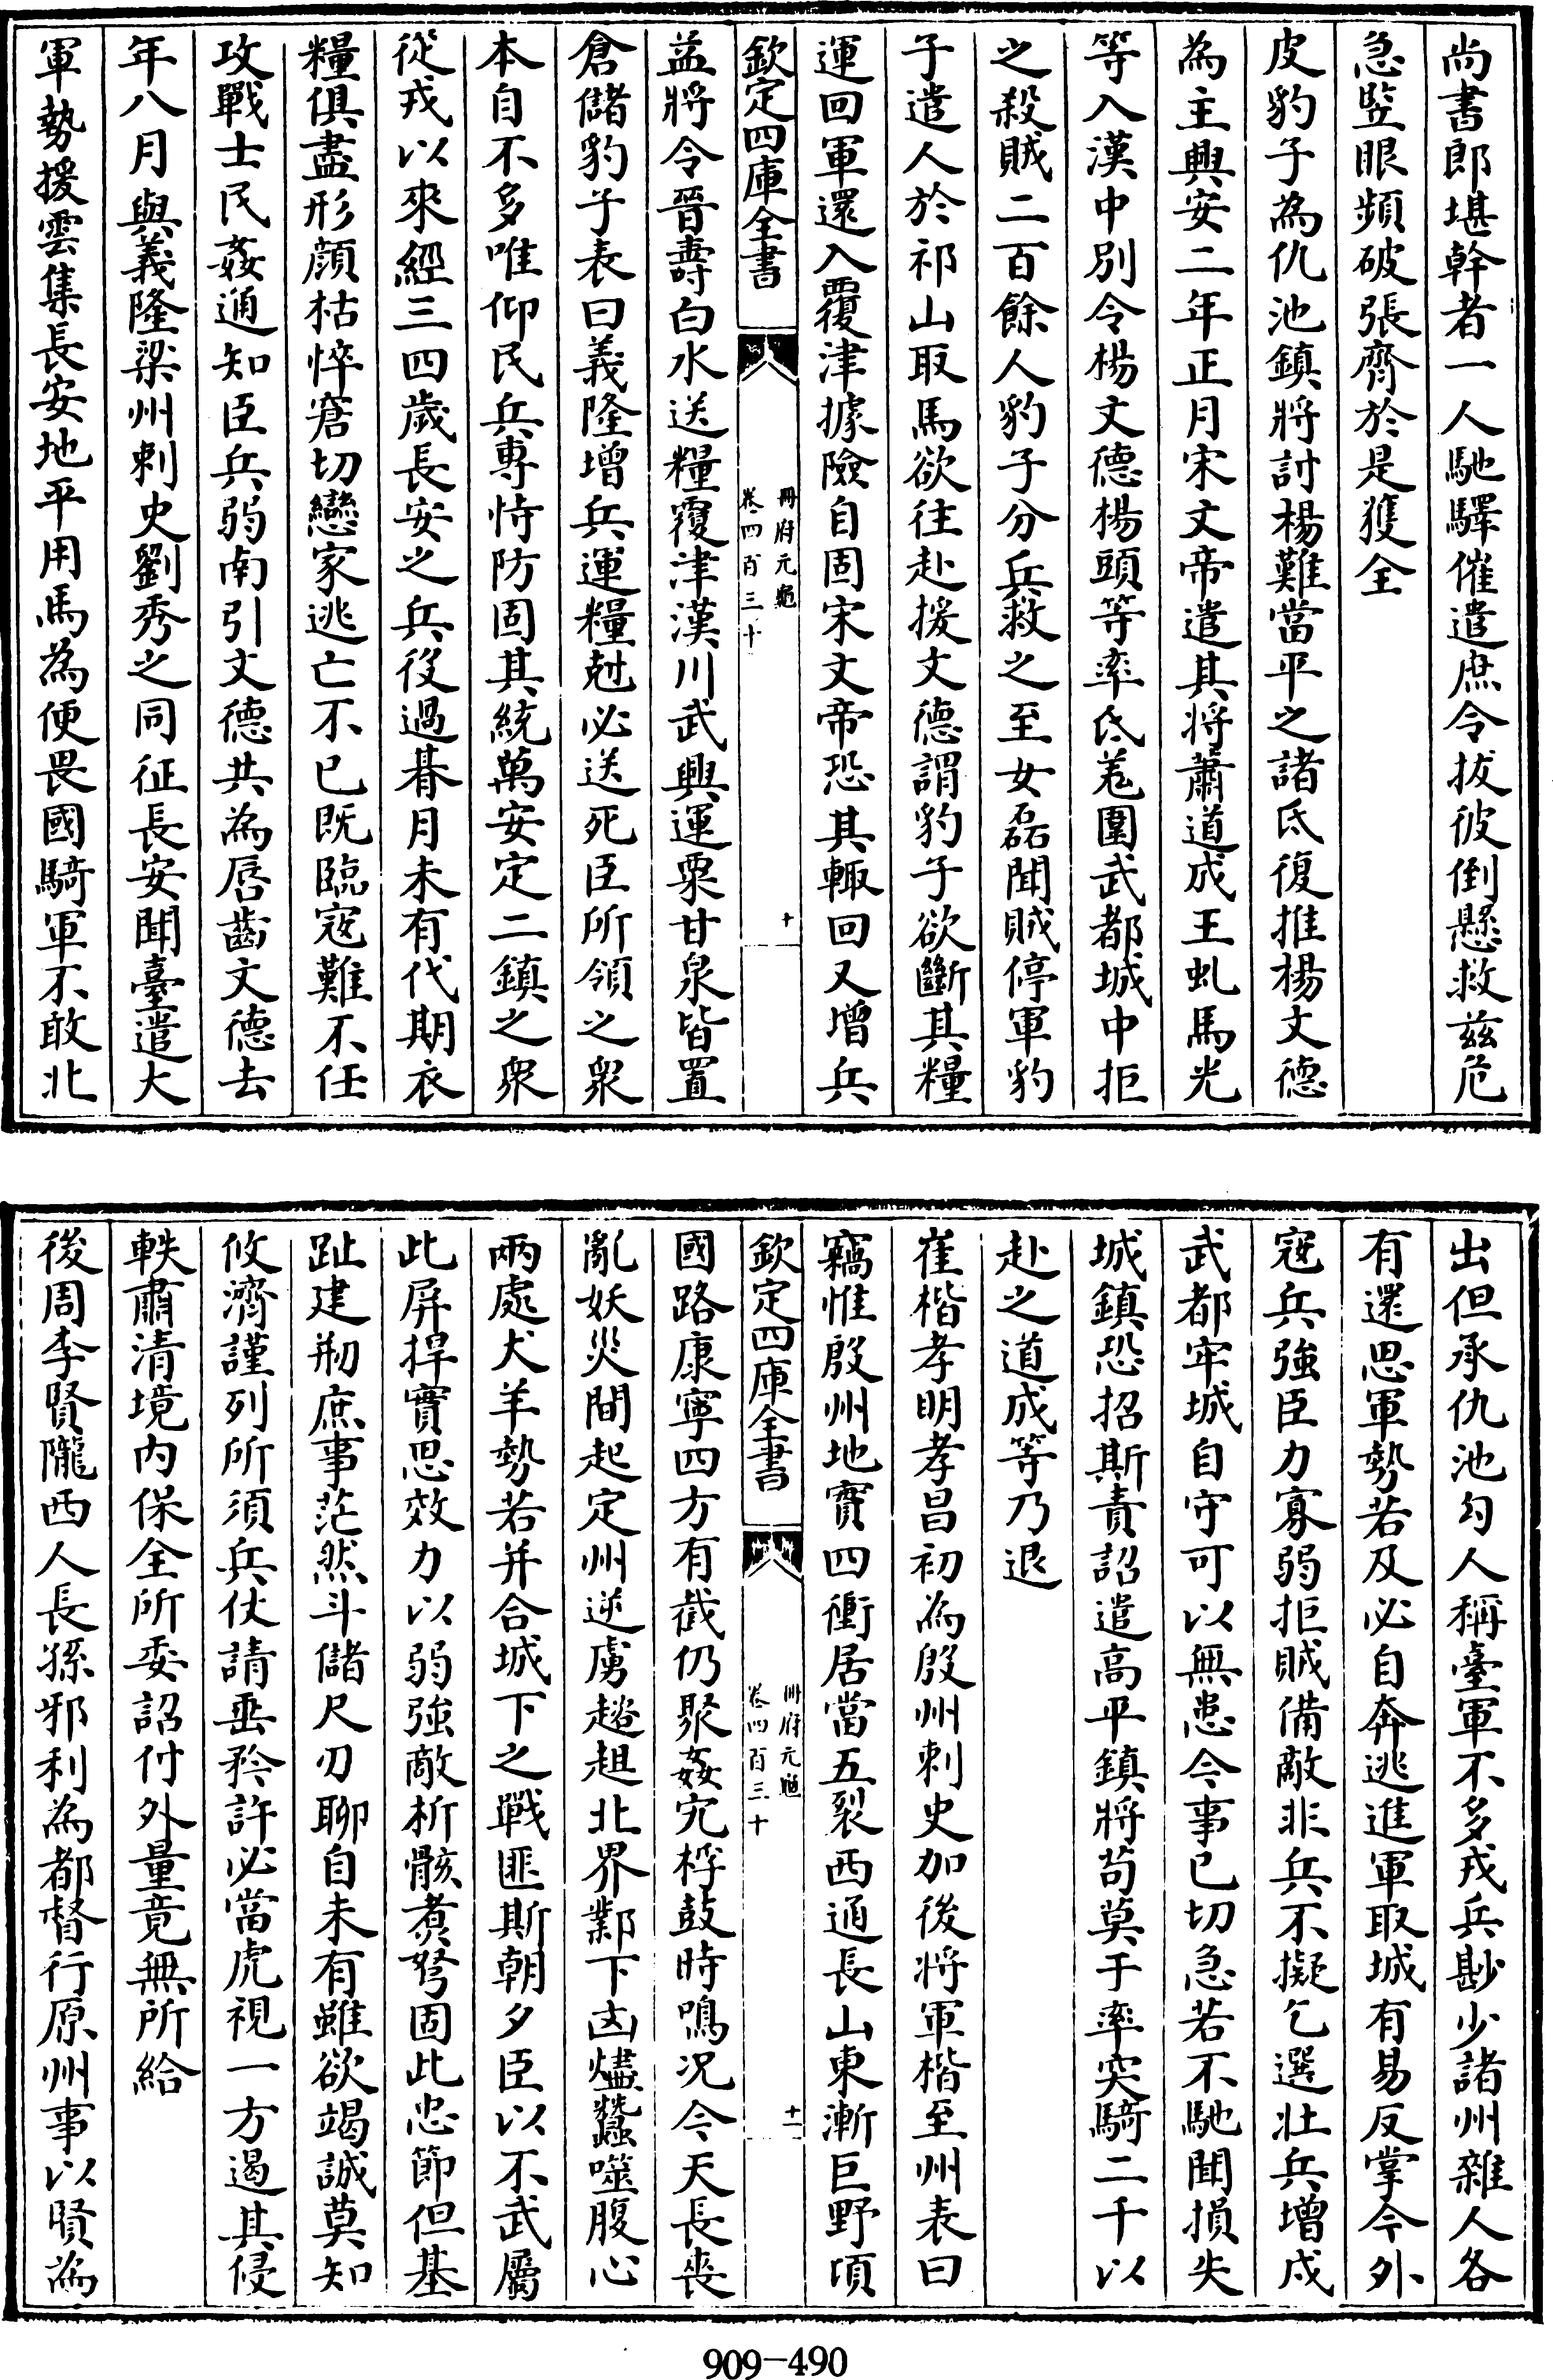 尚書郎堪幹者一人馳驛催遣庶令拔彼倒懸救兹危
急竪眼頻破張齊於是獲全
皮豹子為仇池鎮將討楊難當平之諸氐復推楊文德
為主興安二年正月宋文帝遣其將蕭道成王虬馬光
等入漢中別令楊文德楊頭等率氐羌圍武都城中拒
之殺賊二百餘人豹子分兵救之至女磊聞賊停軍豹
子遣人於祁山取馬欲往赴援文德謂豹子欲斷其糧
運回軍還入覆津據險自固宋文帝恐其輙回又增兵
欽定四庫全書
冊府元龜
卷四百三十
十
益將令晉壽白水送糧覆津漢川武興運粟甘泉皆置
倉儲豹子表曰義隆增兵運糧尅必送死臣所領之衆
本自不多唯仰民兵專恃防固其統萬安定二鎮之衆
從戎以來經三四歲長安之兵役過朞月未有代期衣
糧俱盡形顔枯悴窘切戀家逃亡不已既臨宼難不任
攻戰士民姦通知臣兵弱南引文德共為唇齒文德去
年八月與義隆梁州刺史劉秀之同征長安聞臺遣大
軍勢援雲集長安地平用馬為便畏國騎軍不敢北
出但承仇池勾人稱臺軍不多戎兵尠少諸州雜人各
有還思軍勢若及必自奔逃進軍取城有易反掌今外
宼兵強臣力寡弱拒賊備敵非兵不擬乞選壯兵增戍
武都牢城自守可以無患今事已切急若不馳聞損失
城鎮恐招斯責詔遣高平鎮將苟莫于率突騎二千以
赴之道成等乃退
崔楷孝明孝昌初為殷州刺史加後將軍楷至州表曰
竊惟殷州地實四衝居當五裂西通長山東漸巨野頃
欽定四庫全書
冊府元龜
卷四百三十
十一
國路康寧四方有截仍聚姦宄桴鼓時鳴况今天長喪
亂妖災間起定州逆虜趦趄北界鄴下凶燼蠶噬腹心
兩處犬羊勢若并合城下之戰匪斯朝夕臣以不武屬
此屏捍實思效力以弱強敵析骸煑弩固此忠節但基
趾建刱庶事茫然斗儲尺刃聊自未有雖欲竭誠莫知
攸濟謹列所須兵仗請垂矜許必當虎視一方遏其侵
軼肅清境内保全所委詔付外量竟無所給
後周李賢隴西人長孫邪利為都督行原州事以賢為
909-490